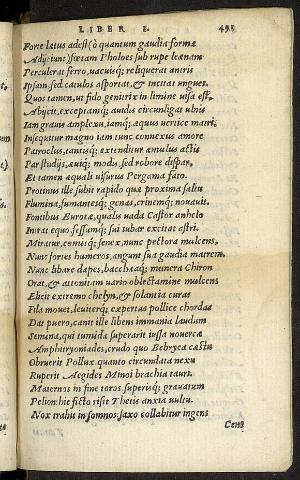 LIBER I. 495
Forte lætus adest (ò quantum gaudia formæ
Adijciunt) fœtam Pholoes sub rupe leænam
Perculerat ferro, vacuisq; reliquerat antris
Ipsam, sed catulos asportat, & incitat vngues.
Quos tamen, vt fido genitrix in limine visa est,
Abijcit, exceptamq; auidis circumligat vlnis
Iam grauis amplexu, iamq; æquus vertice matri.
Insequitur magno iam tunc connexus amore
Patroclus, tantisq; extenditur æmulus actis
Par studijs, æuiq; modis, sed robore dispar,
Et tamen æquali visurus Pergama fato.
Protinus ille subit rapido quæ proxima saltu
Flumina, fumantesq; genas, crinemq; nouauit.
Fontibus Eurotæ, qualis vada Castor anhelo
Intrat equo, fessumq; sui iubar excitat astri.
Miratur, comitq; senex, nunc pectora mulcens,
Nunc fortes humeros, angunt sua gaudia matrem.
Nunc libare dapes, bacchæaq; munera Chiron
Orat, & attonitam vario oblectamine mulcens
Elicit extremo chelyn, & solantia curas
Fila mouet, leuiterq; expertas pollice chordas
Dat puero, canit ille libens immania laudum
Semina, qui tumidæ superarit iussa nouercæ
Amphitryoniades, crudo quo Bebryca cæstu
Obruerit Pollux quanto circumdata nexu
Ruperit Aegides Minoi brachia tauri.
Maternos in fine toros superisq; grauatum
Pelion: hic ficto risit Thetis anxia vultu.
Nox trahit in somnos: saxo collabitur ingens
Cent